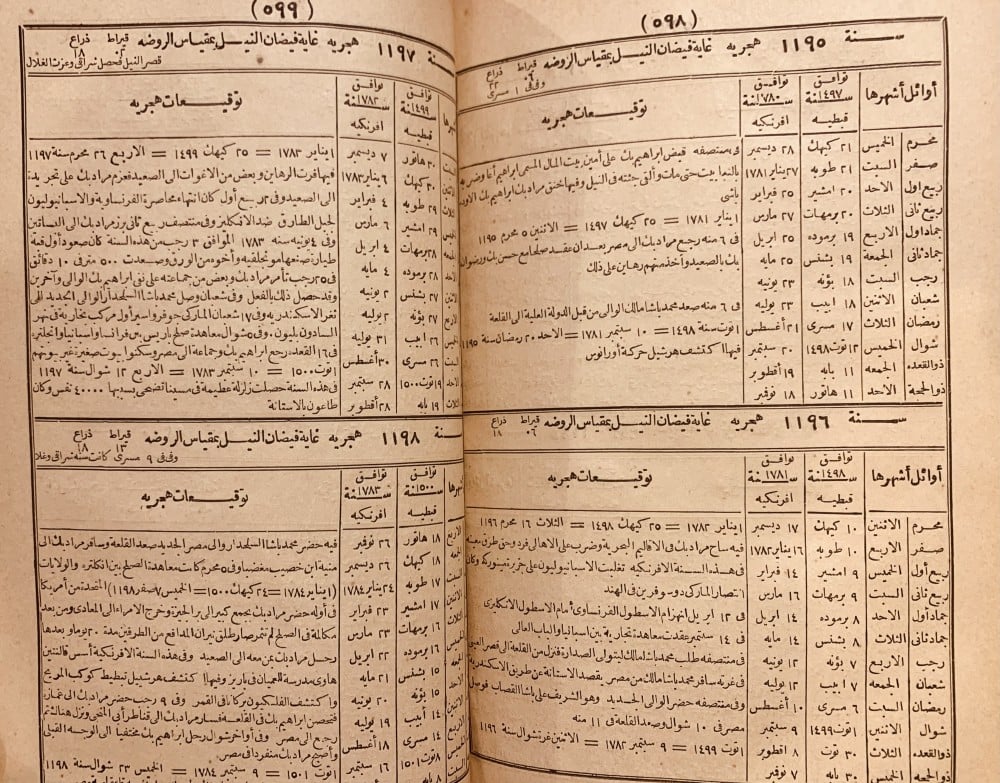 (٥٩٨)
سنة ١١٩٥ هجريه غاية فيضان النيل بمقياس الروضه قيراط ٦ ذراع ٢٢
وفى فى ١ مسرى
أوائل أشهرها توافق سنة ١٤٩٧ قبطيه توافق سنة ١٧٨٠ افرنكيه توقيعات هجريه
محرم الخميس ٢١ كيهك ٢٨ ديسمبر
صفر السبت ٢١ طوبه ٢٧ يناير ١٧٨١
ربيع اول الاحد ٢٠ امشير ٢٥ فبراير
ربيع ثانى الثلاث ٢٠ برمهات ٢٧ مارس
جماد اول الاربع ١٩ برموده ٢٥ ابريل
جماد ثانى الجمعة ١٩ بشنس ٢٥ مايه
رجب السبت ١٨ بؤنه ٢٣ يونيه
شعبان الاثنين ١٨ ابيب ٢٣ يوليه
رمضان الثلاث ١٧ مسرى ٢١ أغسطس
شوال الخميس ١٢ توت ١٤٩٨ ٢٠ سبتمبر
ذو القعده الجمعه ١١ بابه ١٩ أقطوبر
ذو الحجة الاحد ١١ هاتور ١٨ نوفمبر
فى منتصفه قبض ابراهيم بك على أمين بيت المال المسمى ابراهيم أغا وضربه
باشى
١ يناير ١٧٨١ = ٢٥ كيهك ١٤٩٧ = الاثنين ٥ محرم ١١٩٥
فى ٦ منه رجع مراد بك الى مصر بعد ان عقد صلحا مع حسن بك ورضوان
بك بالصعيد وأخذ منهم رهاين على ذلك
فى ٦ منه صعد محمد باشا مالك الوالى من قبل الدولة العلية الى القلعة
١ توت سنة ١٤٩٨ = ١٠ سبتمبر ١٧٨١ = الاحد ٢٠ رمضان سنة ١١٩٥
فيها اكتشف هرشيل حركة أورانوس
سنة ١١٩٦ هجريه غاية فيضان النيل بمقياس الروضه قيراط ٠٦ ذراع ١٨
أوائل أشهرها توافق سنة ١٤٩٨ قبطيه توافق سنة ١٧٨١ افرنكيه توقيعات هجريه
محرم الاثنين ١٠ كيهك ١٧ ديسمبر
صفر الاربع ١٠ طوبه ١٦ يناير ١٧٨٢
ربيع أول الخميس ٩ امشير ١٤ فبراير
ربيع ثانى السبت ٩ برمهات ١٦ مارس
جماد أول الاحد ٨ برموده ١٤ ابريل
جماد ثانى الثلاث ٨ بشنس ١٤ مايه
رجب الاربع ٧ بؤنه ١٢ يونيه
شعبان الجمعه ٧ ابيب ١٢ يوليه
رمضان السبت ٦ مسرى ١٠ أغسطس
شوال الاثنين ١ توت ١٤٩٩ ٩ سبتمبر
ذو القعده الثلاث ٣٠ توت ٨ اقطوبر
ذو الحجه الخميس ٣٠ بابه ٧ نوفمبر
١ يناير ١٧٨٢ = ٢٥ كيهك ١٤٩٨ = الثلاث ١٦ محرم ١١٩٦
فيه ساح مراد بك فى الاقاليم البحرية وضرب على الاهالى
فى هذه السنة الافرنكيه تغلبت الاسبانيوليون على جزيرة مينوركة وكان
انتصار الماركى دوسوفرين فى الهند
فى ١٢ ابريل انهزام الاسطول الفرنساوى أمام الاسطول الانكليزى
فى ١٤ سبتمبر عقدت معاهدة تجارية بين اسبانيا والباب العالى
فى منتصفه طلب محمد باشا مالك ليتولى الصدارة فنزل من القلعة الى قصر العينى
فى غرته سافر محمد باشا مالك من مصر بقصد الاستانة عن طريق الاسكندرية
وفى منتصفه حضر الوالى الجديد وهو الشريف على باشا القصاب فوصل
مصر فى ١٠ شوال وصعد القلعة فى ١١ منه
١ توت ١٤٩٩ = ٩ سبتمبر ١٧٨٢ = الاثنين غرة شوال سنة ١١٩٦
(٥٩٩)
سنة ١١٩٧ هجريه غاية فيضان النيل بمقياس الروضه قيراط ٢ ذراع ١٨
قصر النيل فحصل شراقى وعزت الغلال
توافق سنة ١٤٩٩ قبطيه توافق سنة ١٧٨٢ افرنكيه توقيعات هجريه
٣٠ هاتور ٧ ديسمبر
٣٠ كيهك ٦ يناير ١٧٨٣
٢٩ طوبه ٤ فبراير
٢٩ امشير ٦ مارس
٢٨ برمهات ٤ ابريل
٢٨ برموده ٤ مايه
٢٧ بشنس ٢ يونيه
٢٧ بؤنه ٢ يوليه
٢٦ ابيب ٣١ يوليه
٢٦ مسرى ٣٠ أغسطس
١٩ توت ١٥٠٠ ٢٨ سبتمبر
١٩ بابه ٢٨ أقطوبر
١ يناير ١٧٨٣ = ٢٥ كيهك ١٤٩٩ = الاربع ٢٦ محرم سنة ١١٩٧
فيها فرت الرهاين وبعض من الاغوات الى الصعيد فعزم مراد بك على تجريدة
الى الصعيد وفى ٣ ربيع أول كان انتهاء محاصرة الفرنساوية والاسبانيوليون
لجبل الطارق ضد الانكليز وفى منتصف ربيع ثانى برز مراد بك الى البساتين
وفى ٤ يونيه سنه ١٧٨٣ الموافق ٣ رجب من هذه السنة كان صعود أول قبة
طيارة صنعها مونجلفيه وأخوه من الورق وصعدت ٥٠٠ متر فى ١٠ دقائق
فى ٢٥ رجب تآمر مراد بك وبعض من جماعته على نفى ابراهيم بك الوالى وآخرين
وقد حصل ذلك بالفعل وفى شعبان وصل محمد باشا السلحدار الوالى الجديد الى
ثغر الاسكندريه وفى ١٧ شعبان الماركى جوفرواسير أول مركب بخارية فى نهر
السادون بليون . وفى ٠ شوال معاهدة صلح باريس بين فرانسا واسبانيا وانجلتره
فى ١٦ القعده رجع ابراهيم بك وجماعته الى مصر وسكنوا بيوت صغيرة غير بيوتهم
١ توت ١٥٠٠ = ١٠ سبتمبر ١٧٨٣ = الاربع ١٢ شوال سنة ١١٩٧
فى هذه السنة حصلت زلزلة عظيمة فى مسينا تضحى بسببها ٤٠٠٠٠ نفس وكان
طاعون بالاستانة
سنة ١١٩٨ هجريه غاية فيضان النيل بمقياس الروضه قيراط ١٣ ذراع ١٨
وفى فى ٩ مسرى كانت سنة شراقى وغلا
توافق سنة ١٥٠٠ قبطيه توافق سنة ١٧٨٣ افرنكيه توقيعات هجريه
١٨ هاتور ٢٦ نوفمبر
١٨ كيهك ٢٦ ديسمبر
١٧ طوبه ٢٤ يناير ١٧٨٤
١٧ امشير ٢٣ فبراير
١٦ برمهات ٢٣ مارس
١٦ برموده ٢٢ ابريل
١٥ بشنس ٢١ مايه
١٥ بؤنه ٢٠ يونيه
١٤ أبيب ١٩ يوليه
١٤ مسرى ١٨ أغسطس
٨ توت ١٥٠١ ١٦ سبتمبر
فيه حضر محمد باشا السلحدار والى مصر الجديد صعد القلعة وسافر مراد بك الى
منية ابن خصيب مغضبا وفى محرم كانت معاهدة الصلح بين انكلتره والولايات
(١ يناير ١٧٨٤ = ٢٤ كيهك ١٥٠٠ = الخميس ٧ صفر ١١٩٨) المتحدة من أمريكا
فى أوله حضر مراد بك بجمع كبير الى بر الجيزة وخرج الامراء الى المعادى ومن بعد
مكالمة فى الصلح لم تثمر صار طلق نيران المدافع من الطرفين مدة ٢٠ يوما وبعدها
رحل مراد بك بمن معه الى الصعيد وفى هذه السنة الافرنكية أسس فالنتين
هاوى مدرسة العميان فى باريز وفيها اكتشف هرشيل تبطيط كوكب المريخ
واكتشف الفلكيون بركانا فى القمر وفى ٩ رجب حضر مراد بك الى غمازه
رجع الى مصر وفى أواخر شوال رحل ابراهيم بك مختفيا الى الوجه القبلى
وأصبح مراد بك منفردا فى مصر
١ توت ١٥٠١ = ٩ سبتمبر ١٧٨٤ = الخميس ٢٣ شوال سنة ١١٩٨